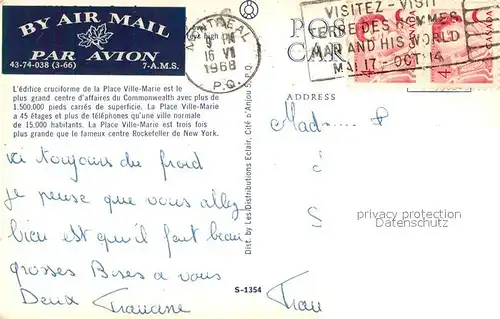 BY AIR MAIL
PAR AVION
43-74-038 (3-66) 7-A.M.S.
MONTREAL
9 PM
16 VI
1968
P.Q.
POST
CARD
VISITEZ - VISIT
TERRE DES HOMMES
MAN AND HIS WORLD
MAI 17 - OCT 14
CANADA
L'édifice cruciforme de la Place Ville-Marie est le
plus grand centre d'affaires du Commonwealth avec plus de
1.500.000 pieds carrés de superficie. La Place Ville-Marie
a 45 étages et plus de téléphones qu'une ville normale
de 15.000 habitants. La Place Ville-Marie est trois fois
plus grande que le fameux centre Rockefeller de New York.
ici toujours du froid
je pense que vous allez
bien et qu'il fait beau
grosses Bises a vous
Deux Francine
Dist. by Les Distributions Eclair, Cité d'Anjou 5, P.Q.
ADDRESS
Madame
privacy protection
Datenschutz
S-1354